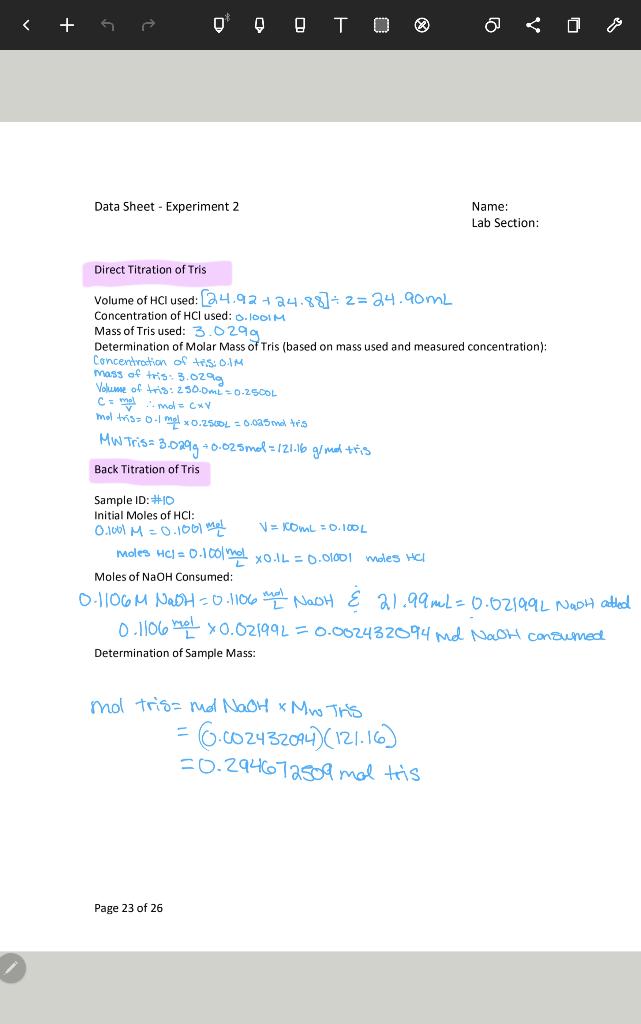 Data Sheet - Experiment 2
Name:
Lab Section:
Direct Titration of Tris
Volume of HCl used: [24.92 + 24.88] ÷ 2 = 24.90mL
Concentration of HCl used: 0.1001M
Mass of Tris used: 3.029g
Determination of Molar Mass of Tris (based on mass used and measured concentration):
Concentration of tris: 0.1M
mass of tris: 3.029g
Volume of tris: 250.0mL = 0.2500L
C = mol/V ∴ mol = C×V
mol tris = 0.1 mol/L × 0.2500L = 0.025mol tris
MW Tris = 3.029g ÷ 0.025mol = 121.16 g/mol tris
Back Titration of Tris
Sample ID: #10
Initial Moles of HCl:
0.1001 M = 0.1001 mol/L V = 100mL = 0.100L
moles HCl = 0.1001 mol/L × 0.1L = 0.01001 moles HCl
Moles of NaOH Consumed:
0.1106M NaOH = 0.1106 mol/L NaOH & 21.99mL = 0.02199L NaOH added
0.1106 mol/L × 0.02199L = 0.002432094 mol NaOH consumed
Determination of Sample Mass:
mol tris = mol NaOH × Mw Tris
= (0.002432094)(121.16)
= 0.294672509 mol tris
Page 23 of 26